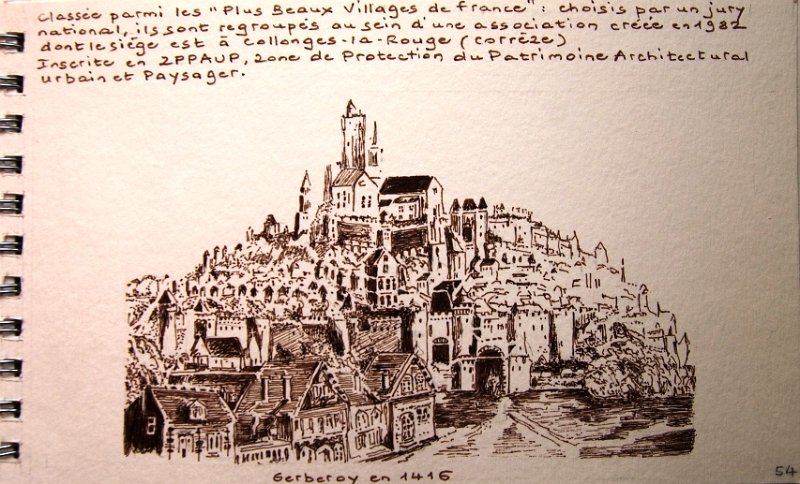 Classée parmi les "Plus Beaux Villages de France" : choisis par un jury
national, ils sont regroupés au sein d'une association créée en 1982
dont le siège est à Collonges-la-Rouge (Corrèze)
Inscrite en ZPPAUP, zone de Protection du Patrimoine Architectural
Urbain et Paysager.
Gerberoy en 1416
54